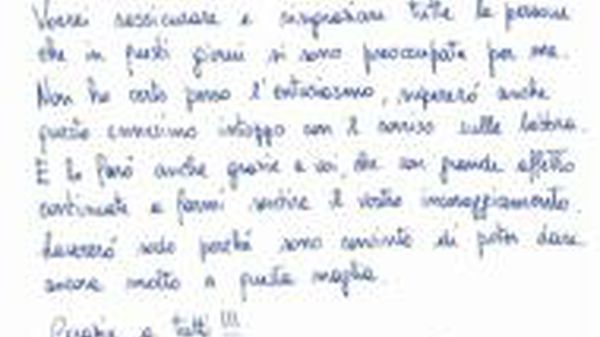 Vorrei rassicurare e ringraziare tutte le persone
che in questi giorni si sono preoccupate per me.
Non ho certo perso l'entusiasmo, supererò anche
questo ennesimo intoppo con il sorriso sulle labbra.
E lo farò anche grazie a voi, che con grande affetto
continuate a farmi sentire il vostro incoraggiamento.
Lavorerò sodo perché sono convinto di poter dare
ancora molto a questa maglia.
Grazie a tutti!!!